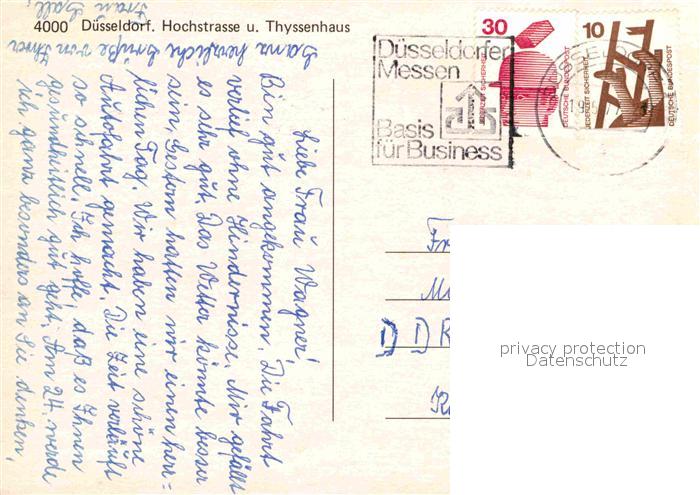 4000 Düsseldorf. Hochstrasse u. Thyssenhaus
Liebe Frau Wagner,
Bin gut angekommen. Die Fahrt
verlief ohne Hindernisse. Mir gefällt
es sehr gut. Das Wetter könnte besser
sein. Gestern hatten wir einen herr=
lichen Tag. Wir haben eine schöne
Autofahrt gemacht. Die Zeit verläuft
so schnell. Ich hoffe, daß es Ihnen
gesundheitlich gut geht. Am 24. werde
ich ganz besonders an Sie denken.
Ganz herzliche Grüße von Ihrer
Frau
Düsseldorfer
Messen
Basis
für Business
30
JEDERZEIT SICHERHEIT
DEUTSCHE BUNDESPOST
10
JEDERZEIT SICHERHEIT
DEUTSCHE BUNDESPOST
Fr
DDR
K
privacy protection
Datenschutz